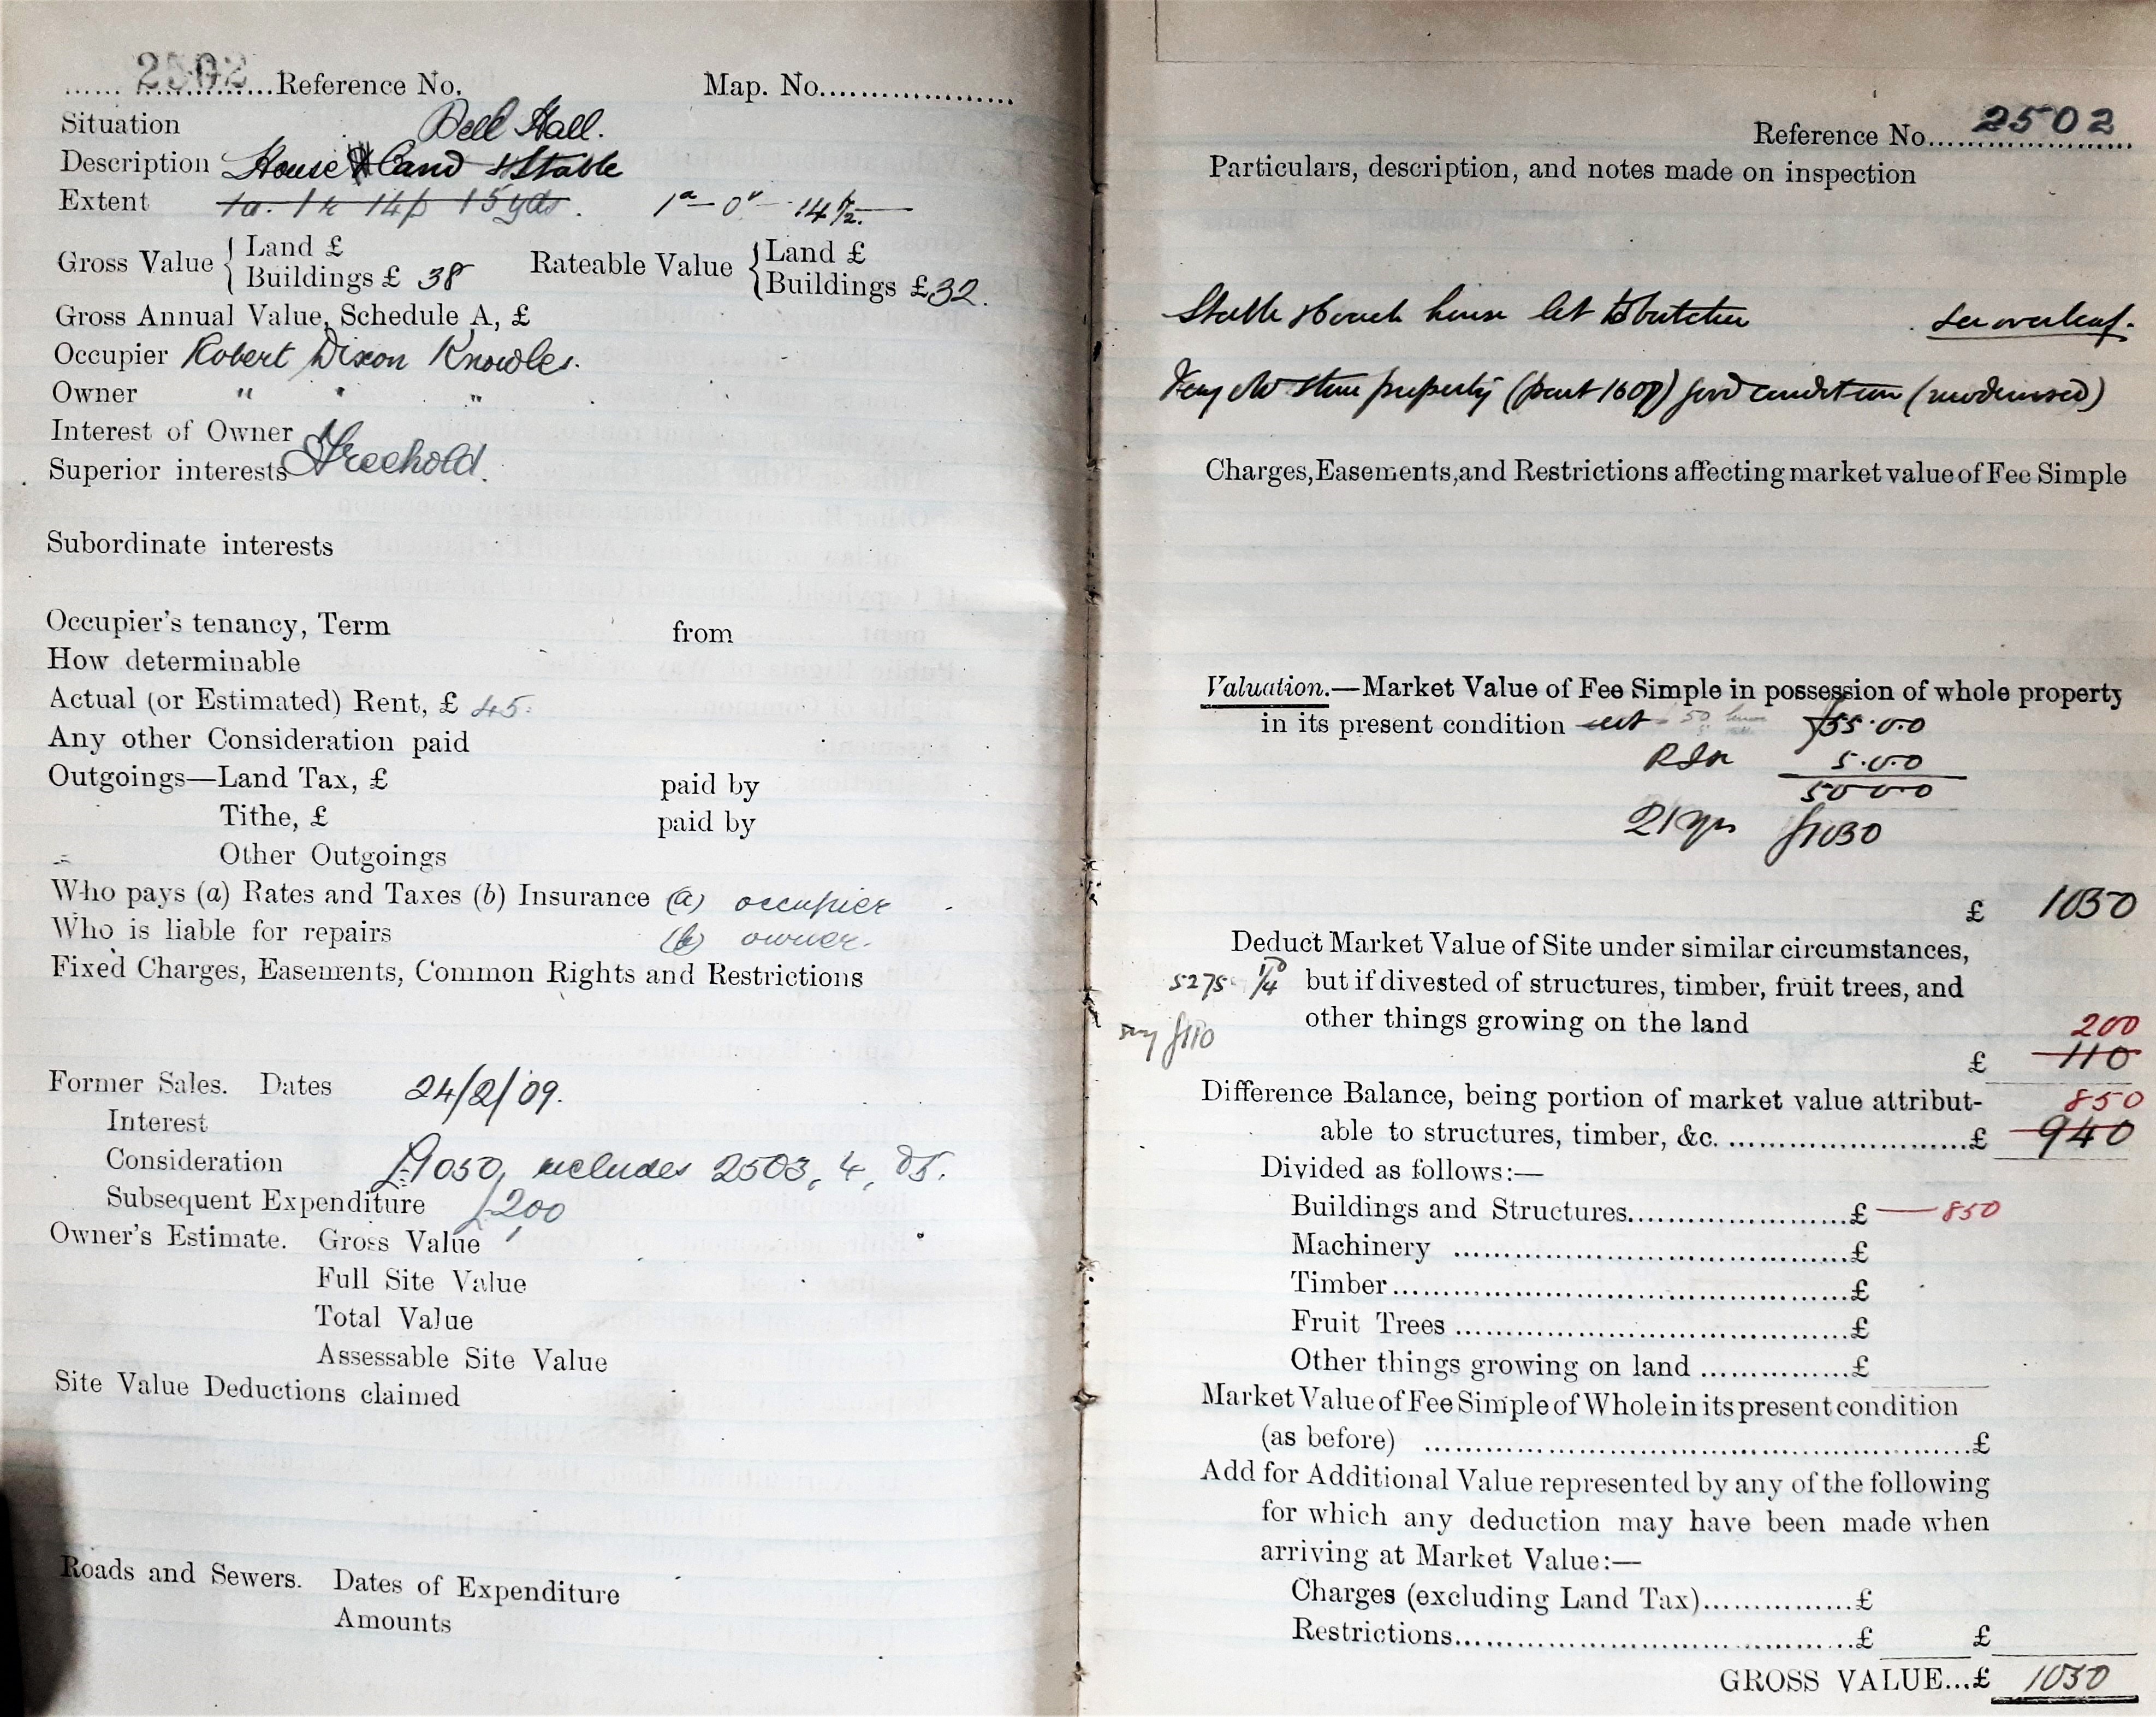 2502 Reference No. Map. No.
Situation Dell Hall.
Description House & Land & Stable
Extent 1a. 1r 14p 15yds. 1a - 0r - 14½
Gross Value { Land £ Rateable Value { Land £
Buildings £ 38 Buildings £32.
Gross Annual Value, Schedule A, £
Occupier Robert Dixon Knowles.
Owner " " "
Interest of Owner
Superior interests Freehold.
Subordinate interests
Occupier's tenancy, Term from
How determinable
Actual (or Estimated) Rent, £ 45.
Any other Consideration paid
Outgoings—Land Tax, £ paid by
Tithe, £ paid by
Other Outgoings
Who pays (a) Rates and Taxes (b) Insurance (a) occupier
Who is liable for repairs (b) owner.
Fixed Charges, Easements, Common Rights and Restrictions
Former Sales. Dates 24/2/09.
Interest
Consideration £1050, includes 2503, 4, 05.
Subsequent Expenditure £200
Owner's Estimate. Gross Value
Full Site Value
Total Value
Assessable Site Value
Site Value Deductions claimed
Roads and Sewers. Dates of Expenditure
Amounts
Reference No. 2502
Particulars, description, and notes made on inspection
Stable & Coach house let to butcher See overleaf.
Very old stone property (part 1600) good condition (modernised)
Charges, Easements, and Restrictions affecting market value of Fee Simple
Valuation.—Market Value of Fee Simple in possession of whole property
in its present condition £55.0.0
5.0.0
50 0 0
21 yrs £1050
£ 1050
Deduct Market Value of Site under similar circumstances,
5275 but if divested of structures, timber, fruit trees, and
other things growing on the land 200
say £110
£ 110
Difference Balance, being portion of market value attribut- 850
able to structures, timber, &c. £ 940
Divided as follows:—
Buildings and Structures £ — 850
Machinery £
Timber £
Fruit Trees £
Other things growing on land £
Market Value of Fee Simple of Whole in its present condition
(as before) £
Add for Additional Value represented by any of the following
for which any deduction may have been made when
arriving at Market Value:—
Charges (excluding Land Tax) £
Restrictions £ £
GROSS VALUE...£ 1050